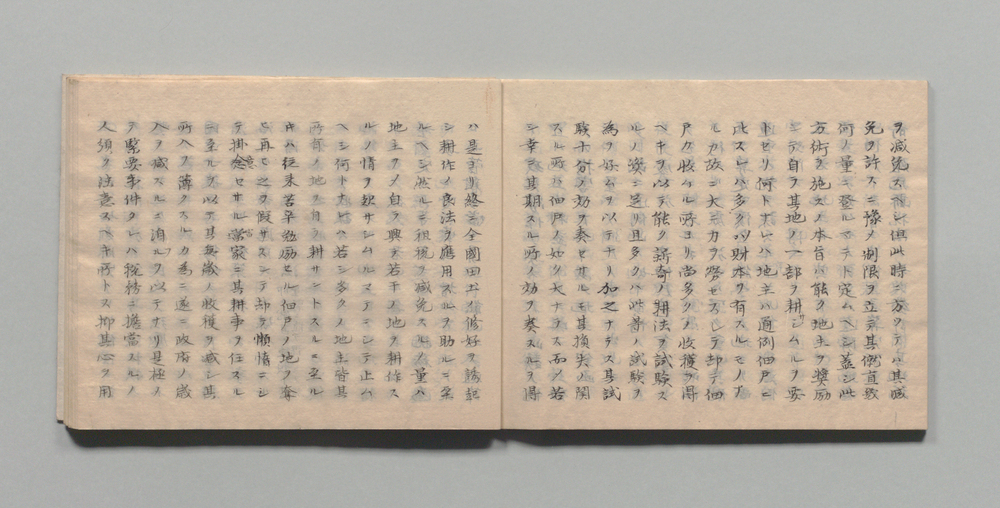 ヲ減免スベシ但此時ニ方ツテハ其減
免ヲ許スニ豫メ制限ヲ立テ其価直幾
何ノ量ニ登ルマテト定ムヘシ蓋シ此
方術ヲ施スノ本旨ハ能ク地主ヲ奬励
シテ自ラ其地ノ一部ヲ耕サシムルヲ要
トセリ何トナレハ地主ハ通例佃戸ニ
比スレハ多クハ財本ヲ有スルモノナ
ルカ故ニ大ニ力ヲ労セスシテ却テ佃
戸カ收ムル所ヨリ尚多クノ收穫ヲ得
ベキヲ以テ能ク新奇ノ耕法ヲ試験ス
ルノ姿ニ足リ且多クハ此等ノ試験ヲ
為ヲ好ムヲ以テナリ加之ナラス其試
験十分ノ功ヲ奏セサルモ其損失ノ関
スル所ハ佃戸ノ如ク大ナラス而ノ若
シ幸ニ其期スル所ノ効ヲ奏スルヲ得
ハ是ヨリ終ニ全國田土ノ修好ヲ誘起
シ耕作ノ良法ヲ應用スルヲ助ルニ至
ルヘシ庶ルニ租税ヲ減免スルノ量ハ
地主ヲメ自ラ興テ若干ノ地ヲ耕作ス
ルノ情ヲ起サシムルマテニシテ止ム
ヘシ何トナレハ若シ多クノ地主皆其
所有ノ地ヲ自ラ耕サントスルニ至ル
キハ従来苦辛勉励セル佃戸ノ地ヲ奪
ヒ再ヒ之ヲ假サスシテ却テ懶惰ニシ
テ掛念セサル當家ニ其耕事ヲ任スル
ニ至ルヲ以テ其毎歳ノ收獲ヲ減シ其
所入ヲ薄クスルカ為ニ遂ニ政府ノ歳
入ヲ減スルニ洎ルヲ以テナリ是極メ
テ緊要事件タレハ税務ニ擔當スルノ
人須ク注意スベキ所トス抑其心ヲ用